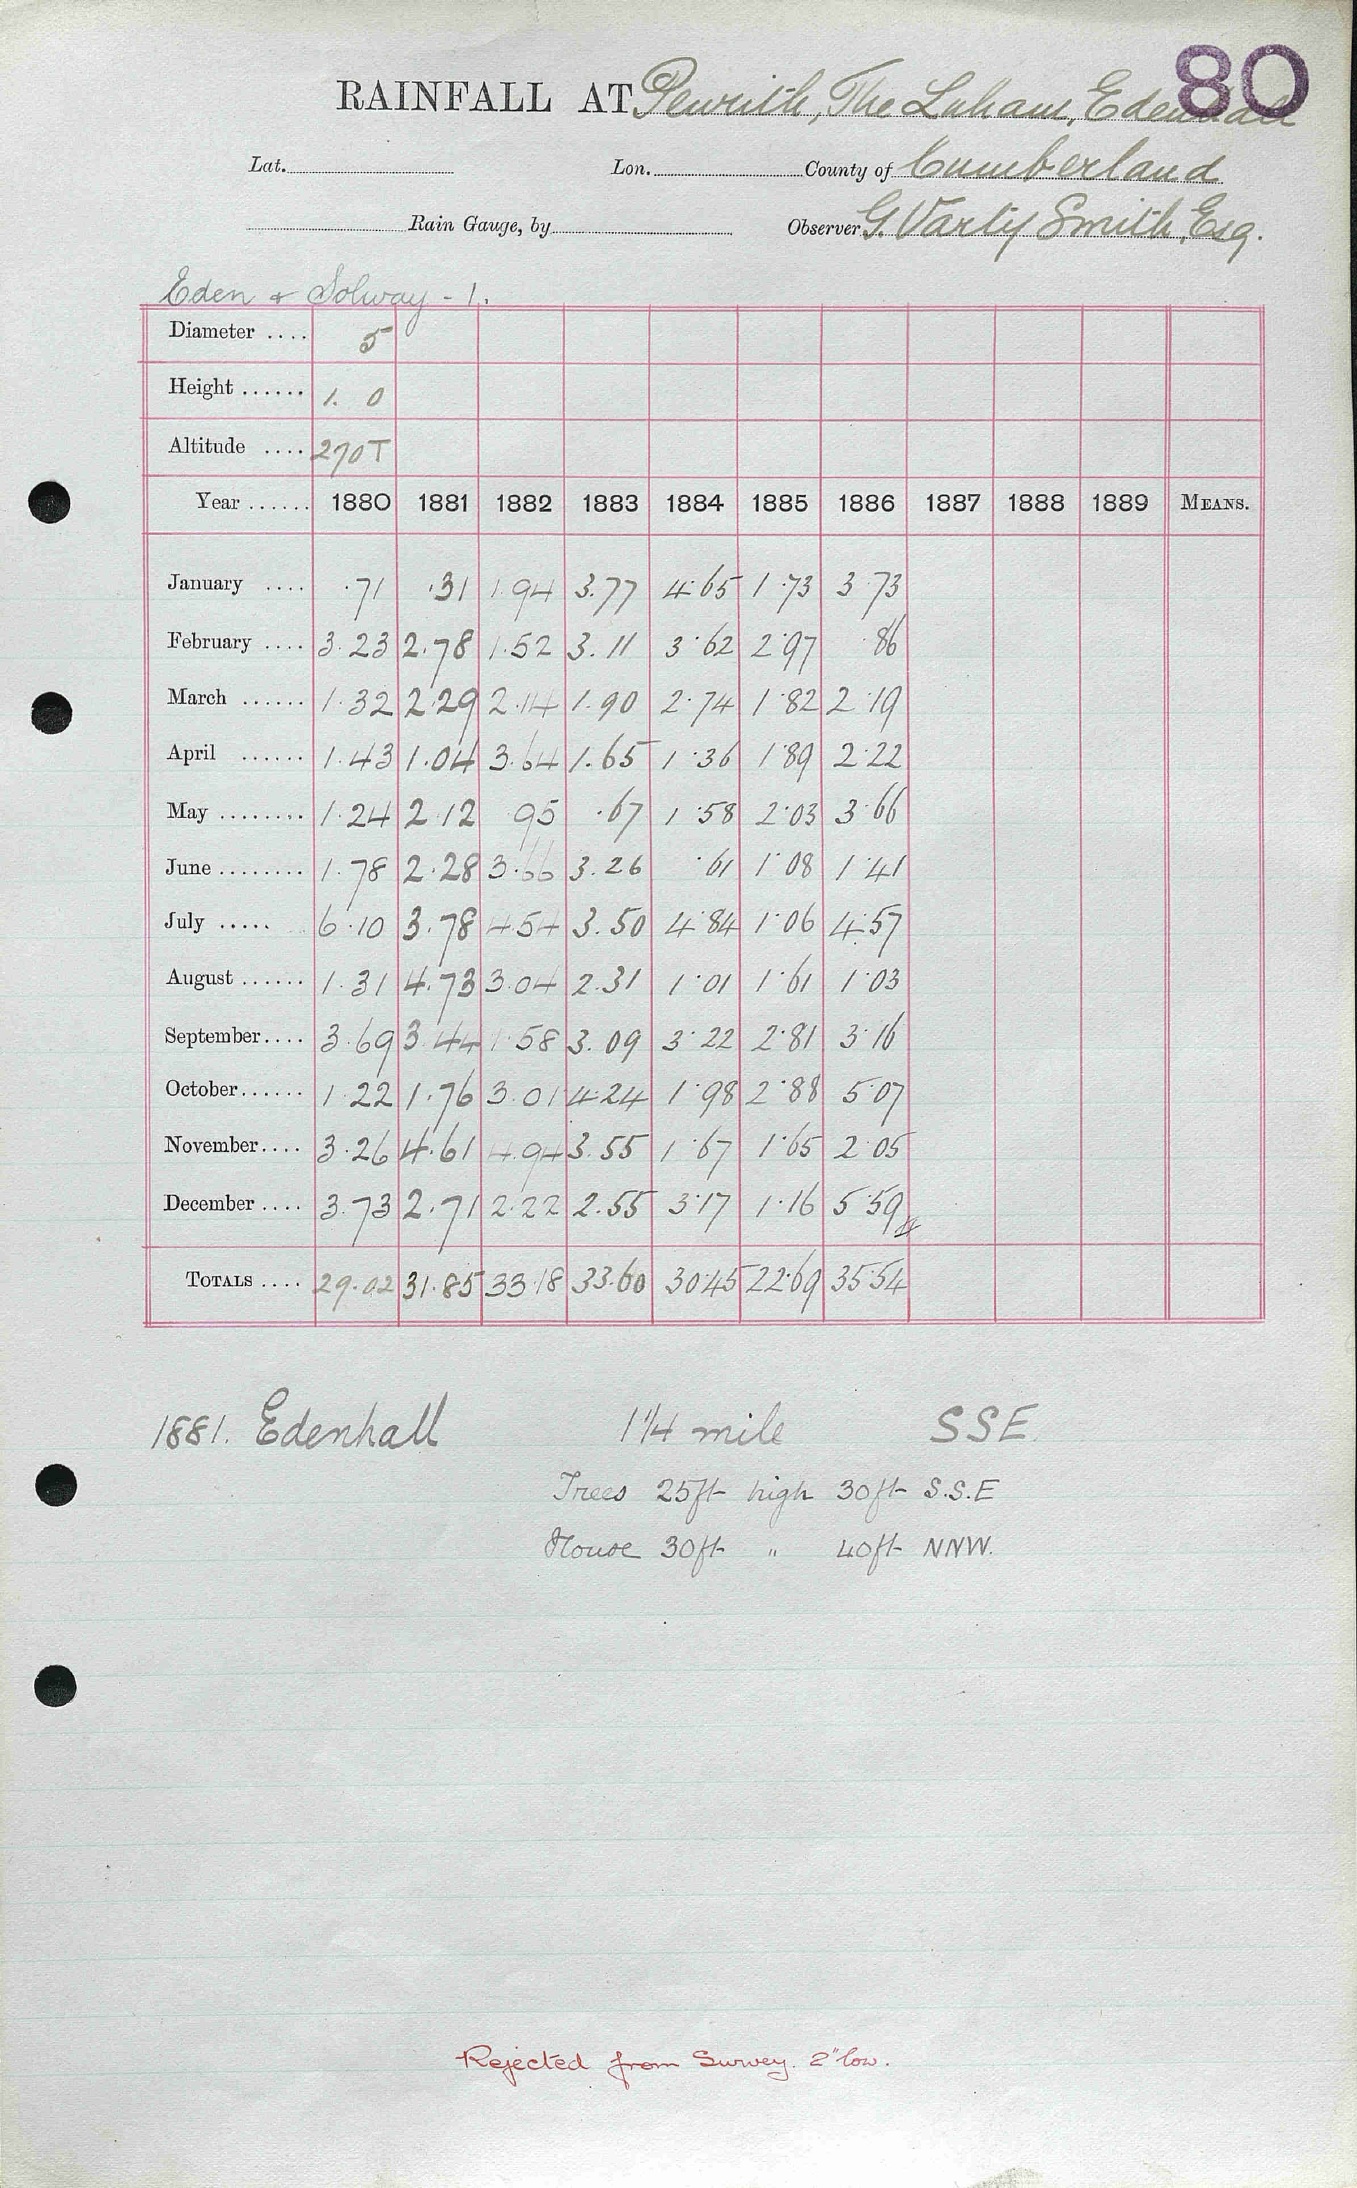 80
RAINFALL AT Penrith, The Luham, Edenhall
Lat. Lon. County of Cumberland
Rain Gauge, by Observer G. Varty Smith, Esq.
Eden & Solway - 1.
Diameter .... 5
Height ...... 1. 0
Altitude .... 270T
Year ...... 1880 1881 1882 1883 1884 1885 1886 1887 1888 1889 MEANS.
January .... .71 .31 1.94 3.77 4.65 1.73 3.73
February .... 3.23 2.78 1.52 3.11 3.62 2.97 .86
March ...... 1.32 2.29 2.14 1.90 2.74 1.82 2.19
April ...... 1.43 1.04 3.64 1.65 1.36 1.89 2.22
May ........ 1.24 2.12 .95 .67 1.58 2.03 3.66
June ........ 1.78 2.28 3.66 3.26 .61 1.08 1.41
July ..... 6.10 3.78 4.54 3.50 4.84 1.06 4.57
August ...... 1.31 4.73 3.04 2.31 1.01 1.61 1.03
September.... 3.69 3.44 1.58 3.09 3.22 2.81 3.16
October...... 1.22 1.76 3.01 4.24 1.98 2.88 5.07
November.... 3.26 4.61 4.94 3.55 1.67 1.65 2.05
December .... 3.73 2.71 2.22 2.55 3.17 1.16 5.59
TOTALS .... 29.02 31.85 33.18 33.60 30.45 22.69 35.54
1881. Edenhall 1 1/4 mile SSE.
Trees 25ft high 30ft S.S.E
House 30ft " 40ft NNW.
Rejected from Survey. 2" low.